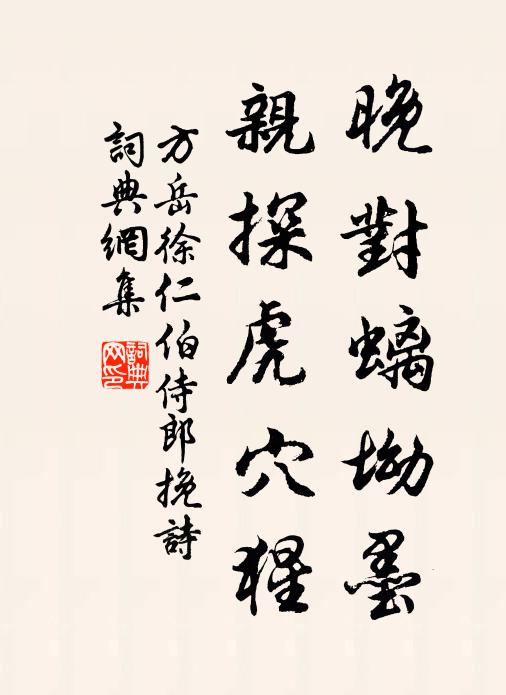 晚對螭坳墨
親探虎穴猩
方岳徐仁伯侍郎挽詩
詞典網集
詞典网印